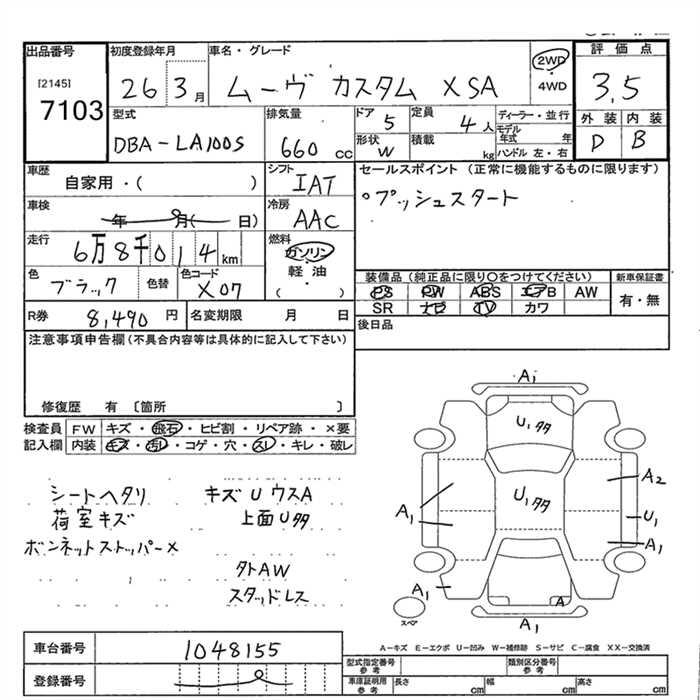 出品番号 初度登録年月 車名・グレード 評価点
[2145] 26 3月 ムーヴ カスタム XSA 2WD・4WD 3.5
7103
型式 排気量 ドア 5 定員 4人 ディーラー・並行 外装 内装
DBA-LA100S 660cc 形状 W 積載 kg モデル年式 年 ハンドル 左・右 D B
車歴 シフト セールスポイント(正常に機能するものに限ります)
自家用・( ) IAT °プッシュスタート
車検 年 月( 日) 冷房 AAC
走行 6万8千014km 燃料 ガソリン・軽油・( )
色 ブラック 色替 色コード X07
装備品(純品に限り○をつけてください) 新車保証書
PS PW ABS エアB AW 有・無
SR ナビ TV カワ
R券 8,490円 名変期限 月 日 後日品
注意事項申告欄(不具合内容等は具体的に記入して下さい)
修復歴 有 〔箇所 〕
検査員記入欄 FW キズ・飛石・ヒビ割・リペア跡・×要
内装 キズ・汚レ・コゲ・穴・スレ・キレ・破レ
シートヘタリ キズUウスA
荷室キズ 上面U多
ボンネットストッパー×
タトAW
スタッドレス
A1
U1多
A2
A1 U1多 U1
A1
A1 スペア A
A1
A-キズ E-エクボ U-凹み W-補修跡 S-サビ C-腐食 XX-交換済
車台番号 1048155
登録番号
型式指定番号 参考 類別区分番号 参考
車庫証明用 参考 長さ cm 幅 cm 高さ cm